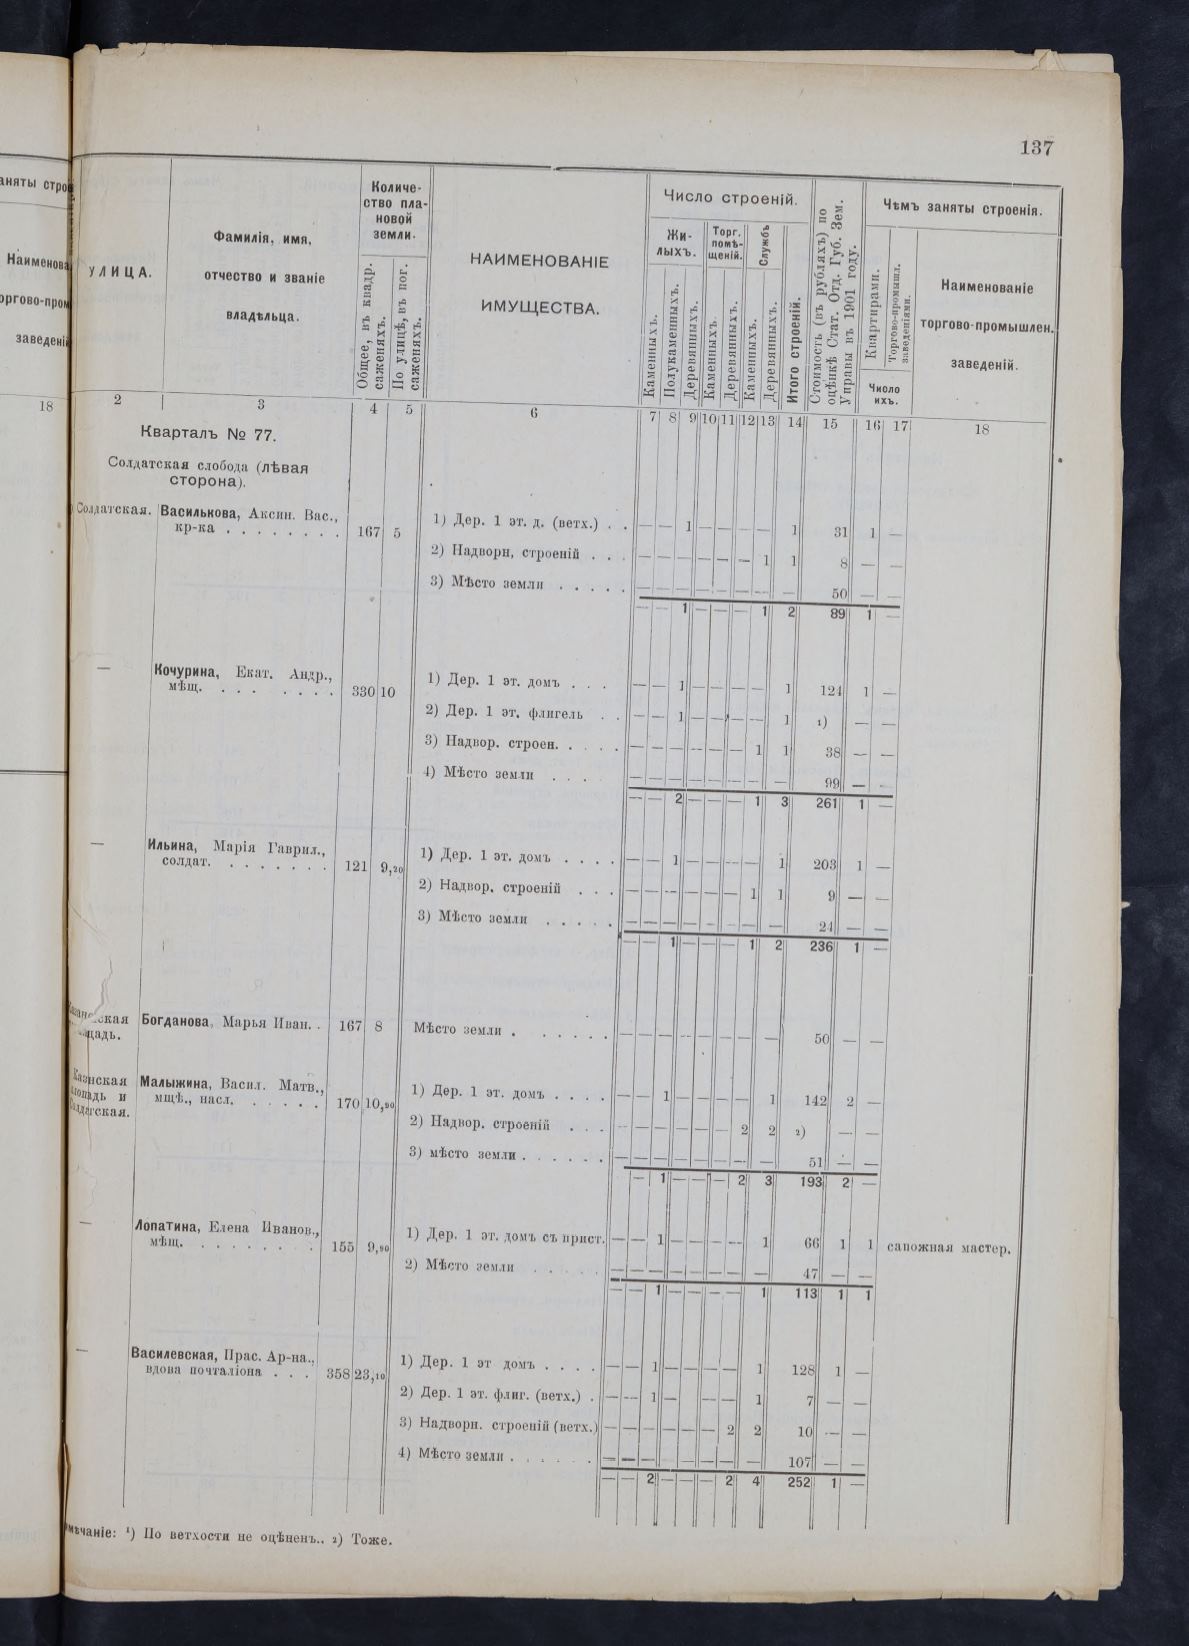 137
аняты стро
Наименова
оргово-пром
заведені
18
УЛИЦА.
Фамилія, имя,
отчество и званіе
владѣльца.
Количе-
ство пла-
новой
земли.
Общее, въ квадр.
саженяхъ.
По улицѣ, въ пог.
саженяхъ.
НАИМЕНОВАНІЕ
ИМУЩЕСТВА.
Число строеній.
Жи-
лыхъ.
Торг.
помѣ-
щеній.
Службъ
Каменныхъ.
Полукаменныхъ.
Деревянныхъ.
Каменныхъ.
Деревянныхъ.
Каменныхъ.
Деревянныхъ.
Итого строеній.
Стоимость (въ рубляхъ) по
оцѣнкѣ Стат. Отд. Губ. Зем.
Управы въ 1901 году.
Чѣмъ заняты строенія.
Квартирами.
Торгово-промышл.
заведеніями.
Число
ихъ.
Наименованіе
торгово-промышлен.
заведеній.
2 3 4 5 6 7 8 9 10 11 12 13 14 15 16 17 18
Кварталъ № 77.
Солдатская слобода (лѣвая
сторона).
Солдатская. Василькова, Аксин. Вас.,
кр-ка . . . . . . . . 167 5
1) Дер. 1 эт. д. (ветх.) . . — — 1 — — — — 1 31 1 —
2) Надворн, строеній . . . — — — — — — 1 1 8 — —
3) Мѣсто земли . . . . . — — — — — — — — 50 — —
— — 1 — — — 1 2 89 1 —
— Кочурина, Екат. Андр.,
мѣщ. . . . . . . . 330 10
1) Дер. 1 эт. домъ . . . — — 1 — — — — 1 124 1 —
2) Дер. 1 эт. флигель . . — — 1 — — — — 1 1) — —
3) Надвор. строен. . . . . — — — — — — 1 1 38 — —
4) Мѣсто земли . . . . — — — — — — — — 99 — —
— — 2 — — — 1 3 261 1 —
— Ильина, Марія Гаврил.,
солдат. . . . . . . . 121 9,20
1) Дер. 1 эт. домъ . . . . — — 1 — — — — 1 203 1 —
2) Надвор. строеній . . . — — — — — — 1 1 9 — —
3) Мѣсто земли . . . . . — — — — — — — — 24 — —
— — 1 — — — 1 2 236 1 —
ская Богданова, Марья Иван. . 167 8 Мѣсто земли . . . . . . — — — — — — — — 50 — —
щадь.
Казнская Малыжина, Васил. Матв.,
площадь и мщѣ., насл. . . . . . 170 10,90
Солдатская.
1) Дер. 1 эт. домъ . . . . — — 1 — — — — 1 142 2 —
2) Надвор. строеній . . . — — — — — — 2 2 2) — —
3) мѣсто земли . . . . . . — — — — — — — — 51 — —
— 1 — — — 2 3 193 2 —
— Лопатина, Елена Иванов.,
мѣщ. . . . . . . . . 155 9,90
1) Дер. 1 эт. домъ съ прист. — — 1 — — — — 1 66 1 1 сапожная мастер.
2) Мѣсто земли . . . . . — — — — — — — — 47 — —
— — 1 — — — — 1 113 1 1
— Василевская, Прас. Ар-на.,
вдова почталіона . . . 358 23,10
1) Дер. 1 эт домъ . . . . — — 1 — — — — 1 128 1 —
2) Дер. 1 эт. флиг. (ветх.) . — — 1 — — — 1 7 — —
3) Надворн. строеній (ветх.) — — — — — — 2 2 10 — —
4) Мѣсто земли . . . . . . — — — — — — — — 107 — —
— — 2 — — — 2 4 252 1 —
мѣчаніе: ¹) По ветхости не оцѣненъ.. 2) Тоже.